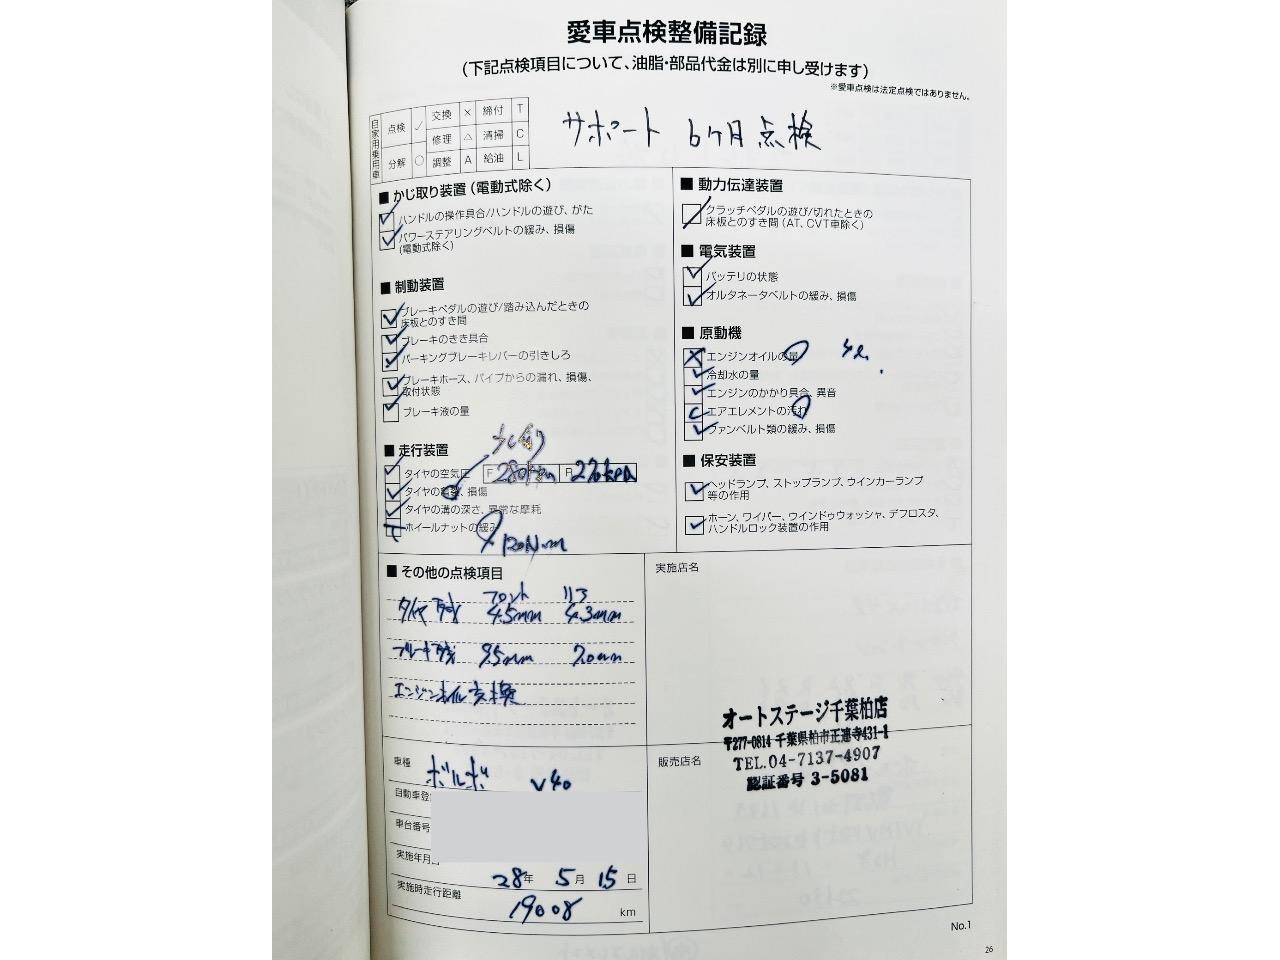 愛車点検整備記録
(下記点検項目について、油脂・部品代金は別に申し受けます)
※愛車点検は法定点検ではありません。
自家用乗用車
点検 ✓ 交換 × 締付 T
修理 △ 清掃 C
分解 ○ 調整 A 給油 L
サポート 6ヶ月点検
■ かじ取り装置(電動式除く)
ハンドルの操作具合/ハンドルの遊び、がた
パワーステアリングベルトの緩み、損傷
(電動式除く)
■ 制動装置
ブレーキペダルの遊び/踏み込んだときの
床板とのすき間
ブレーキのきき具合
パーキングブレーキレバーの引きしろ
ブレーキホース、パイプからの漏れ、損傷、
取付状態
ブレーキ液の量
■ 走行装置
タイヤの空気圧 F 280kpa R 270kpa
タイヤの亀裂、損傷
タイヤの溝の深さ、異常な摩耗
T ホイールナットの緩み
120N・m
■ 動力伝達装置
クラッチペダルの遊び/切れたときの
床板とのすき間(AT、CVT車除く)
■ 電気装置
バッテリの状態
オルタネータベルトの緩み、損傷
■ 原動機
× エンジンオイルの量
冷却水の量
エンジンのかかり具合、異音
C エアエレメントの汚れ
ファンベルト類の緩み、損傷
■ 保安装置
ヘッドランプ、ストップランプ、ウインカーランプ
等の作用
ホーン、ワイパー、ウインドゥウォッシャ、デフロスタ、
ハンドルロック装置の作用
■ その他の点検項目
フロント リア
タイヤ残 4.5mm 4.3mm
ブレーキ残 9.5mm 7.0mm
エンジンオイル交換
実施店名
オートステージ千葉柏店
〒277-0814 千葉県柏市正連寺431-1
TEL.04-7137-4907
認証番号 3-5081
販売店名
車種 ボルボ V40
自動車登
車台番号
実施年月日
28年 5月 15日
実施時走行距離
19008 km
No.1
26